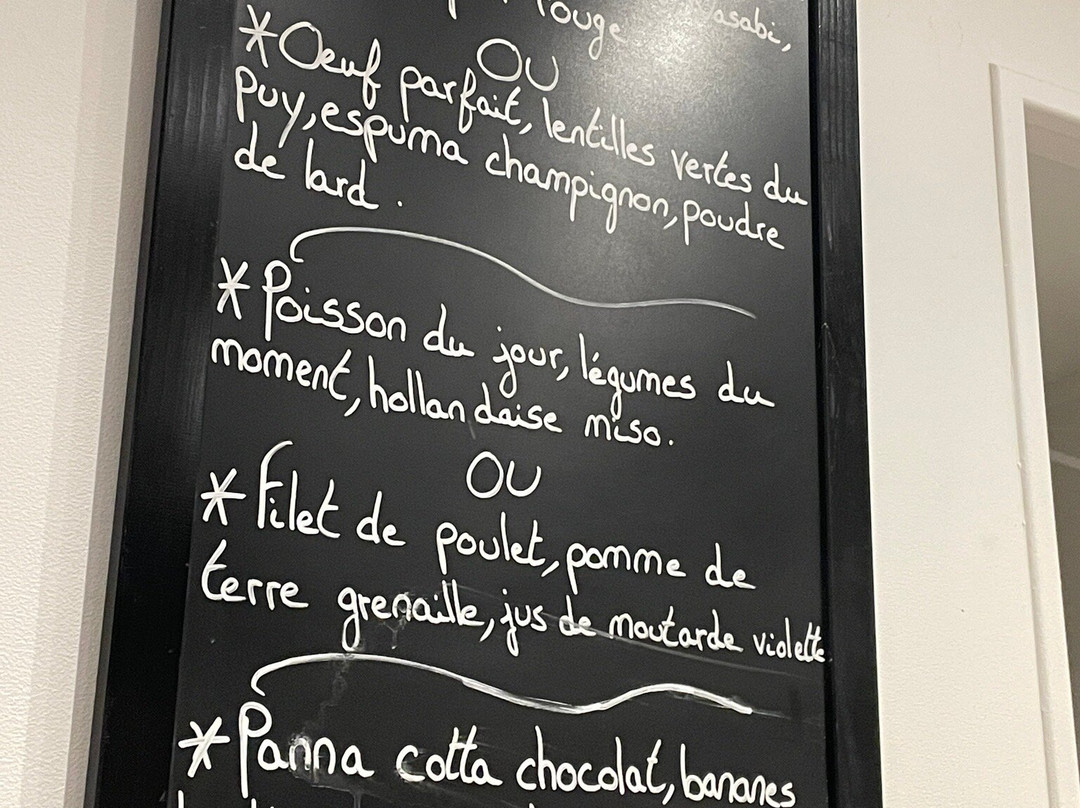 rouge wasabi,
OU
*Oeuf parfait, lentilles vertes du
Puy, espuma champignon, poudre
de lard.
*Poisson du jour, légumes du
moment, hollandaise miso.
OU
*Filet de poulet, pomme de
terre grenaille, jus de moutarde violette
*Panna cotta chocolat, bananes